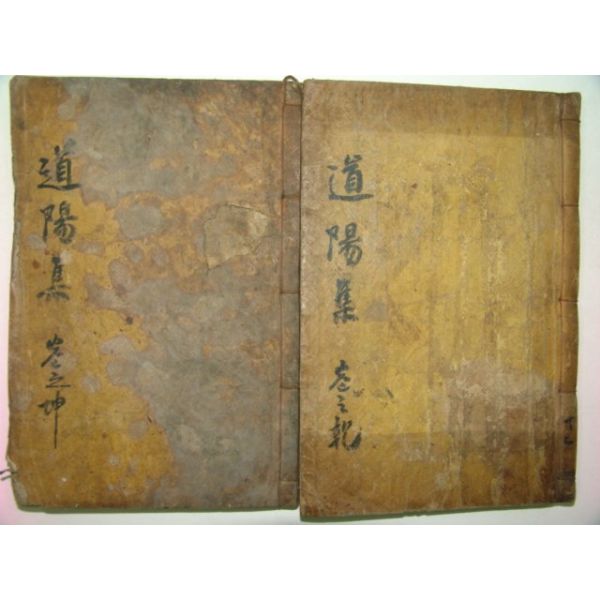 道陽集 卷之乾
道陽集 卷之坤